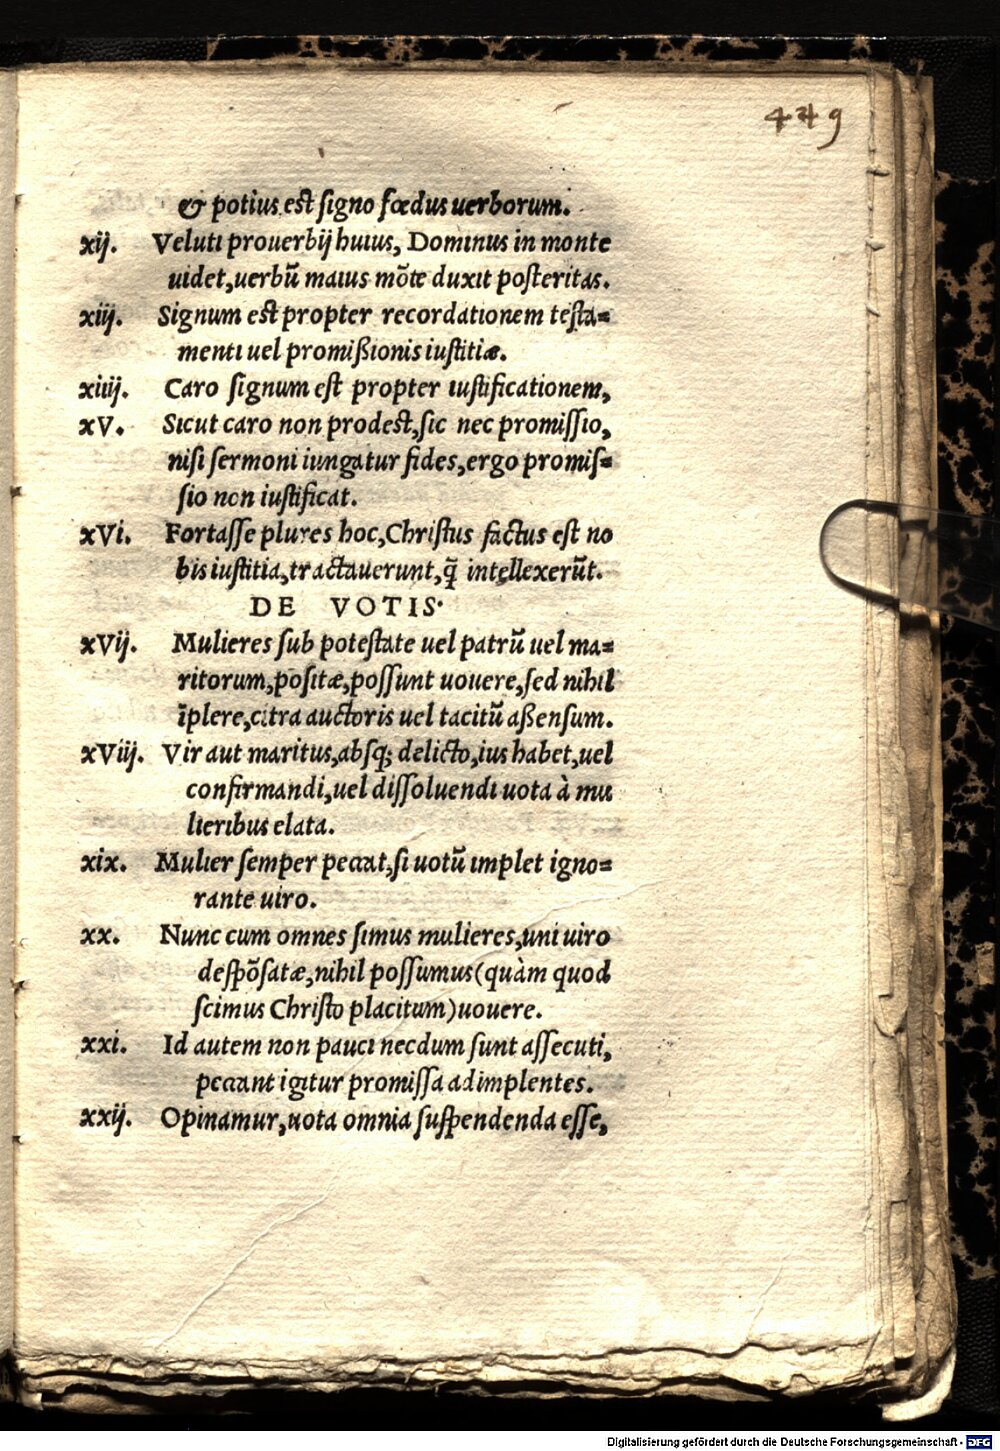 449
& potius est signo fœdus uerborum.
xij. Veluti prouerbij huius, Dominus in monte
uidet, uerbũ maius mõte duxit posteritas.
xiij. Signum est propter recordationem testa=
menti uel promißionis iustitiæ.
xiiij. Caro signum est propter iustificationem,
xV. Sicut caro non prodest, sic nec promissio,
nisi sermoni iungatur fides, ergo promis=
sio non iustificat.
xVi. Fortasse plures hoc, Christus factus est no
bis iustitia, tractauerunt, q̃ intellexerũt.
DE VOTIS.
xVij. Mulieres sub potestate uel patrũ uel ma=
ritorum, positæ, possunt uouere, sed nihil
ĩplere, citra auctoris uel tacitũ aßensum.
xViij. Vir aut maritus, absq; delicto, ius habet, uel
confirmandi, uel dissoluendi uota à mu
lieribus elata.
xix. Mulier semper peccat, si uotũ implet igno=
rante uiro.
xx. Nunc cum omnes simus mulieres, uni uiro
despõsatæ, nihil possumus (quàm quod
scimus Christo placitum) uouere.
xxi. Id autem non pauci necdum sunt assecuti,
peccant igitur promissa adimplentes.
xxij. Opinamur, uota omnia suspendenda esse,
Digitalisierung gefördert durch die Deutsche Forschungsgemeinschaft - DFG